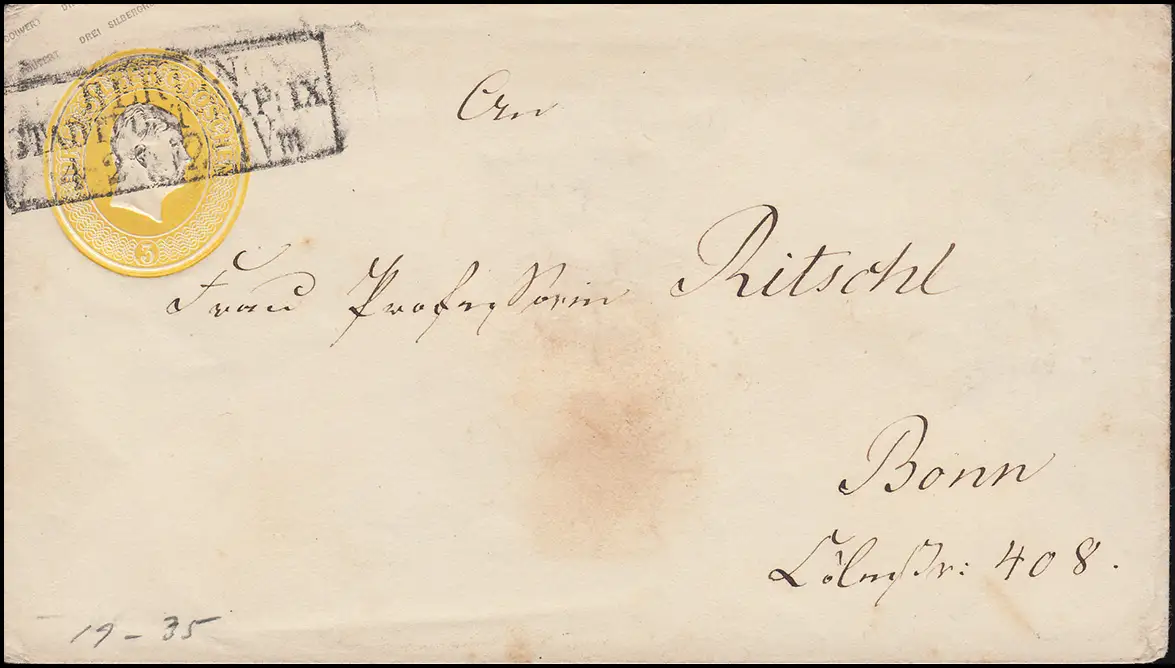 COUVERT
DREI SILBERGR
BERLIN
STADTPOST-EXP: IX
4 2 Vm
3
An
Frau Professorin Ritschl
Bonn
Cölnstr: 408.
19-35